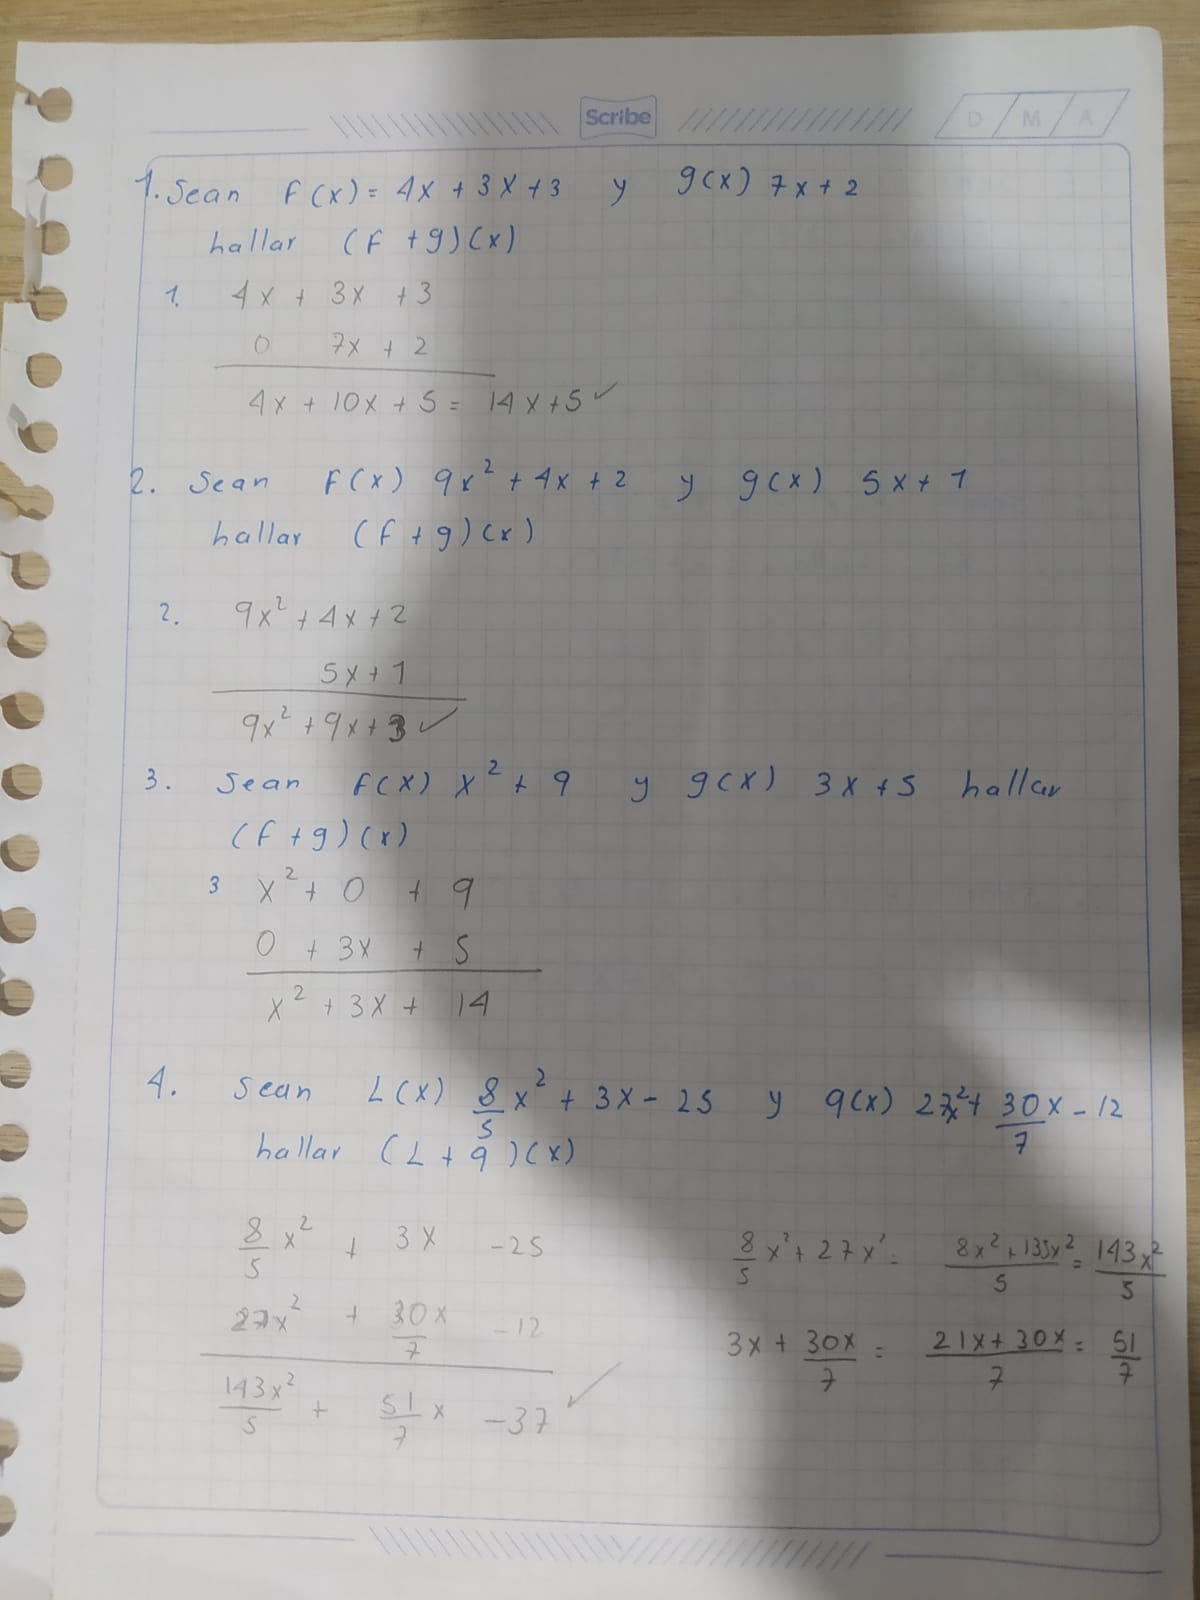 Scribe
D / M / A
1. Sean f(x) = 4x + 3x + 3 y g(x) 7x + 2
hallar (f + g)(x)
1. 4x + 3x + 3
0 7x + 2
4x + 10x + 5 = 14x + 5 ✓
2. Sean f(x) 9x² + 4x + 2 y g(x) 5x + 1
hallar (f + g)(x)
2. 9x² + 4x + 2
5x + 1
9x² + 9x + 3 ✓
3. Sean f(x) x² + 9 y g(x) 3x + 5 hallar
(f + g)(x)
3 x² + 0 + 9
0 + 3x + 5
x² + 3x + 14
4. Sean L(x) 8/5 x² + 3x - 25 y q(x) 27x² + 30x/7 - 12
hallar (L + q)(x)
8/5 x² + 3x - 25
27x² + 30x/7 - 12
143x²/5 + 51/7 x - 37 ✓
8/5 x² + 27x² = (8x² + 135x²)/5 = 143x²/5
3x + 30x/7 = (21x + 30x)/7 = 51/7